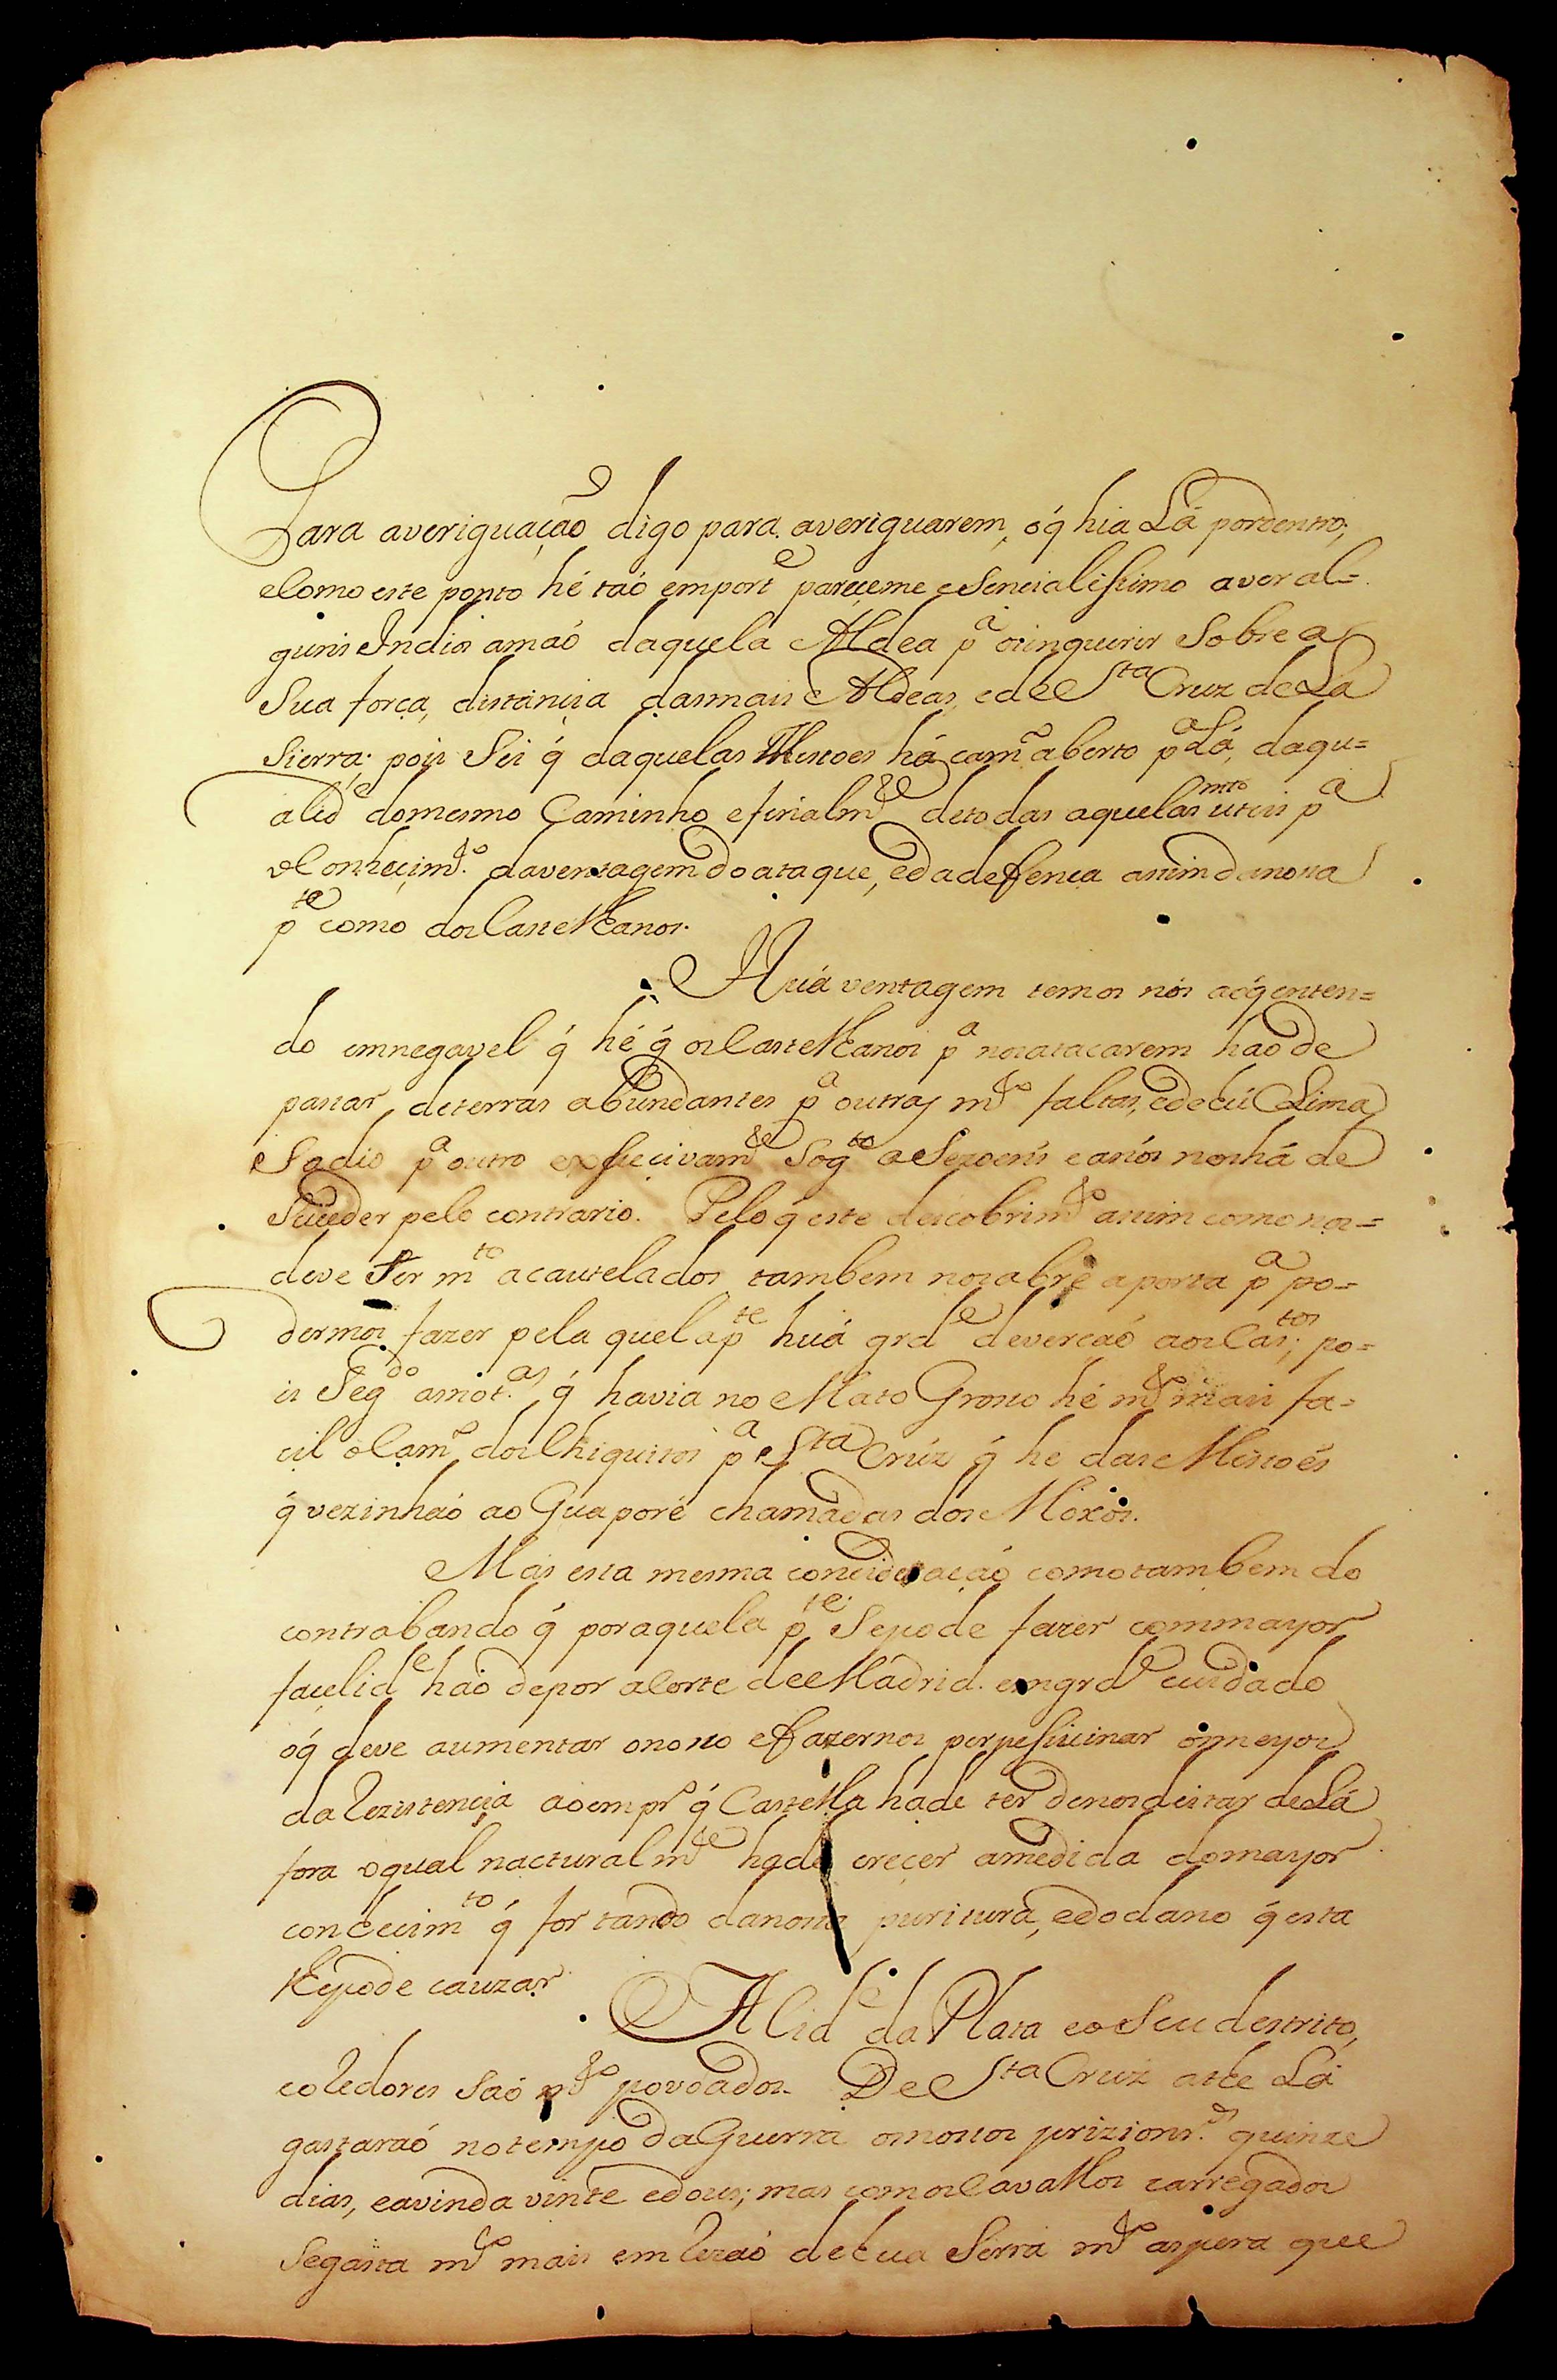 Para averiguação digo para averiguarem, óq̃ hia Lá pordentro;
eComo este ponto hé taó emport.e pareçeme eSencialissimo aver al=
guns Indios amaó daquela Aldea p.a osinquirir Sobre a
Sua força, distançia dasmais Aldeas, ede S.ta Cruz de La
Sierra: pois Sei q̃ daquelas Missoes há cam.o aberto p.a Lá, daqu=
alid.e domesmo Caminho, efinialm.te detodas aquelas m.to uteis p.a
oConheçim.to daventagem doataque, edadeffenca asim danossa
p.te como dosCastelhanos.
Huá ventagem temos nós aóq̃ enten=
do innegavel q̃ hé q̃ osCastelhanos p.a nosatacarem haó de
passar, deterras abundantes p.a outras m.to faltas, edehú Clima
Sadio p.a outro exssecivam.te Sog.to aSezoens eanós noshá de
Suceder pelo contrario. Pelo q̃ este descobrim.to asim comonos=
deve Ser m.to acautelados tambem nosabre aporta p.a po=
dermos fazer pela quela p.te huá grd.e deverçaó aosCas.tos; po=
is Seg.do asnot.as q̃ havia no Mato Grosso hé m.to mais fa=
cil oCam.o dosChiquitos p.a S.ta Crúz q̃ he das Missoés
q̃ vezinhaó ao Guaporé chamadas dos Moxos.
Mas esta mesma concideraçaó comotambem do
contrabando q̃ poraquela p.te Sepode fazer commayor
façelid.e haó depor aCorte deMadrid. emgrd.e cuidado
óq̃ deve aumentar onosso efazernos perpessuinar osmeyos
daRezistençia aoempr.o q̃ Castella hade ter denosdeitar deLá
fora oqual nacturalm.te hade creçer amedida domayor
conhecim.to q̃ for tando danossa puritura, edodano q̃ esta
lhepode cauzar.
ACid.e da Plata eo Seu destrito,
eoRedores Saó m.to povoados. De S.ta Cruz athe Lá
gastaraó notempo daGuerra osnossos prizionr.os quinze
dias, eavinda vinte edous; mas comosCavallos carregados
Segasta m.to mais emRezaó dehua Serra m.to aspera que